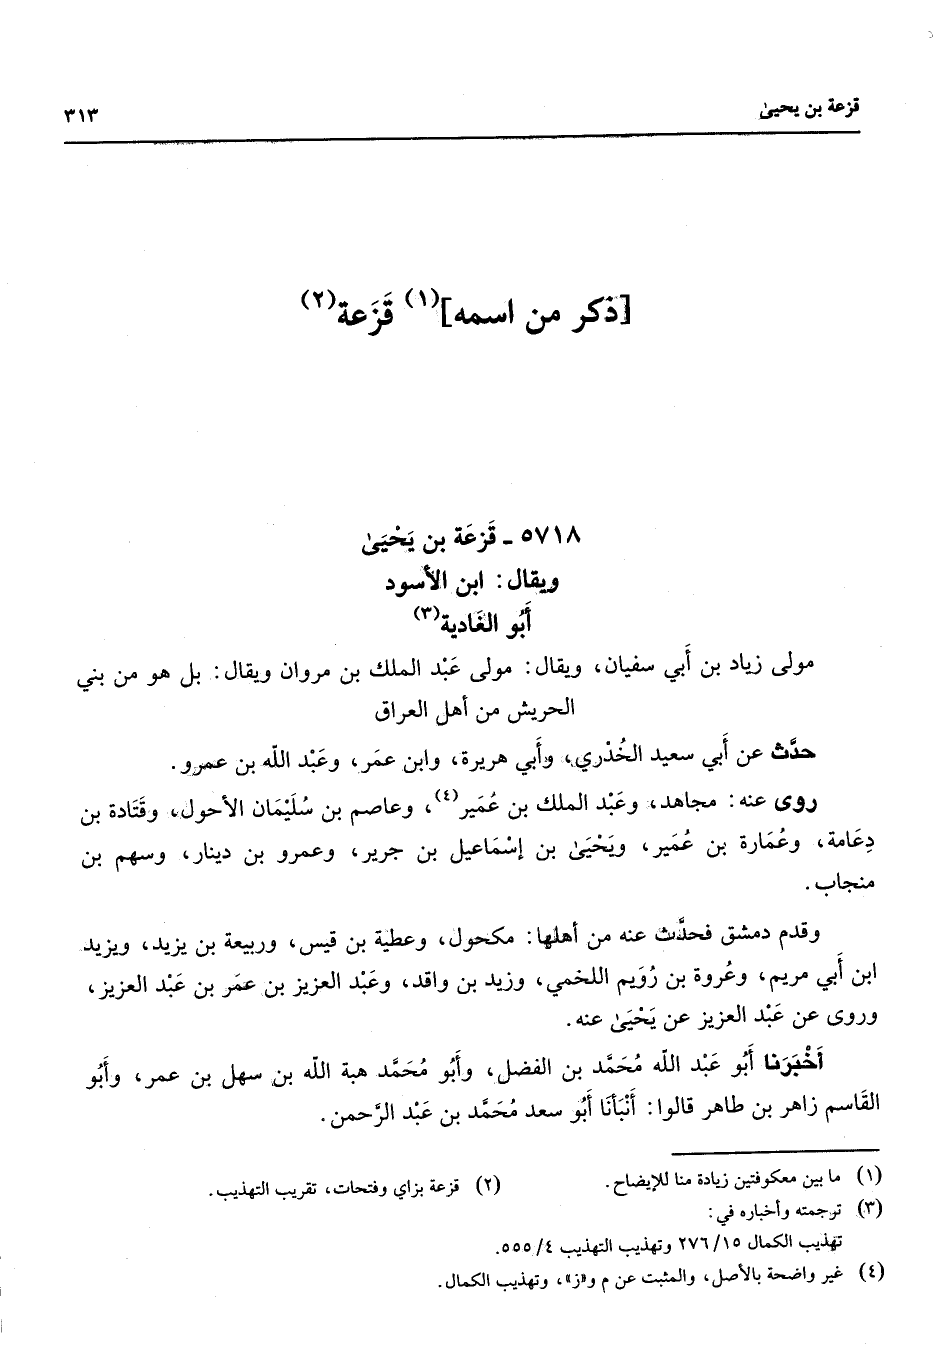 قزعة بن يحيىٰ
٣١٣
[ذكر من اسمه](١) قَزَعة(٢)
٥٧١٨ ـ قَزعَة بن يَحْيَىٰ
ويقال: ابن الأسود
أَبُو الغَادية(٣)
مولى زياد بن أَبي سفيان، ويقال: مولى عَبْد الملك بن مروان ويقال: بل هو من بني
الحريش من أهل العراق
حدَّث عن أَبي سعيد الخُدْري، وأَبي هريرة، وابن عمَر، وعَبْد الله بن عمرو.
روى عنه: مجاهد، وعَبْد الملك بن عُمَير(٤)، وعاصم بن سُلَيْمَان الأحول، وقَتَادة بن
دِعَامة، وعُمَارة بن عُمَير، ويَحْيَىٰ بن إِسْمَاعيل بن جرير، وعمرو بن دينار، وسهم بن
منجاب.
وقدم دمشق فحدَّث عنه من أهلها: مكحول، وعطية بن قيس، وربيعة بن يزيد، ويزيد
ابن أَبي مريم، وعُروة بن رُوَيم اللخمي، وزيد بن واقد، وعَبْد العزيز بن عمَر بن عَبْد العزيز،
وروى عن عَبْد العزيز عن يَحْيَىٰ عنه.
أَخْبَرَنا أَبُو عَبْد الله مُحَمَّد بن الفضل، وأَبُو مُحَمَّد هبة الله بن سهل بن عمر، وأَبُو
القَاسم زاهر بن طاهر قالوا: أَنْبَأنَا أَبُو سعد مُحَمَّد بن عَبْد الرَّحمن.
(١) ما بين معكوفتين زيادة منا للإيضاح. (٢) قزعة بزاي وفتحات، تقريب التهذيب.
(٣) ترجمته وأخباره في:
تهذيب الكمال ١٥/ ٢٧٦ وتهذيب التهذيب ٤/ ٥٥٥.
(٤) غير واضحة بالأصل، والمثبت عن م و«ز»، وتهذيب الكمال.